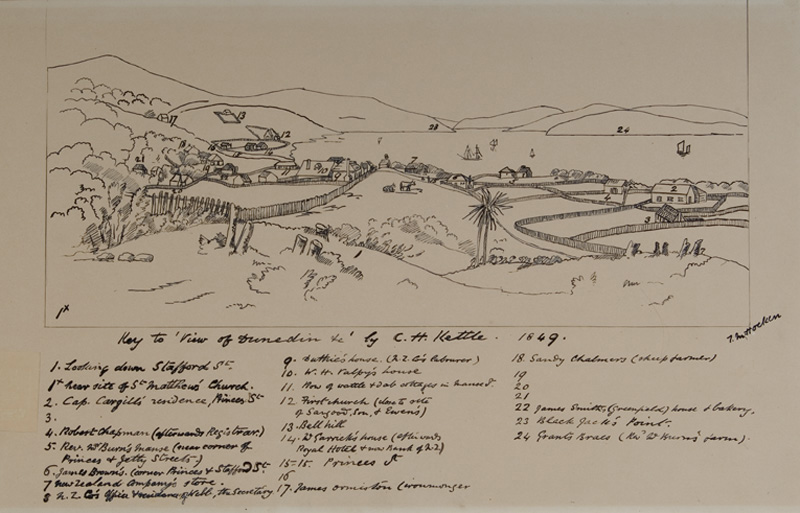 Key to 'View of Dunedin &c' by C. H. Kettle. 1849.
T. M. Hocken
1. Looking down Stafford St.
1x Near site of St Matthew's Church.
2. Cap. Cargill's residence, Princes St
3.
4. Robert Chapman (afterwards Registrar.)
5. Rev. Mr Burn's Manse (near corner of
Princes & Jetty Streets.)
6. James Brown's. (corner Princes & Stafford St.
7 New Zealand Company's store.
8 N.Z. Co's Office & residence of Kettle, the Secretary
9. Duthie's house. (N.Z. Co's labourer)
10. W. H. Valpy's house
11. Row of wattle & dab cottages in Manse St.
12 First church (close to site
of Sargood, Son, & Ewen's)
13. Bell hill
14. Dr Garrick's house (afterwards
Royal Hotel & now Bank of NZ)
15-15. Princes St
16
17. James Ormiston (ironmonger
18. Sandy Chalmers (sheep farmer)
19
20
21
22 James Smith's, (Greenfield) house & bakery.
23 Black Jack's Point.
24 Grant's Braes (Rev Dr Burns' farm).